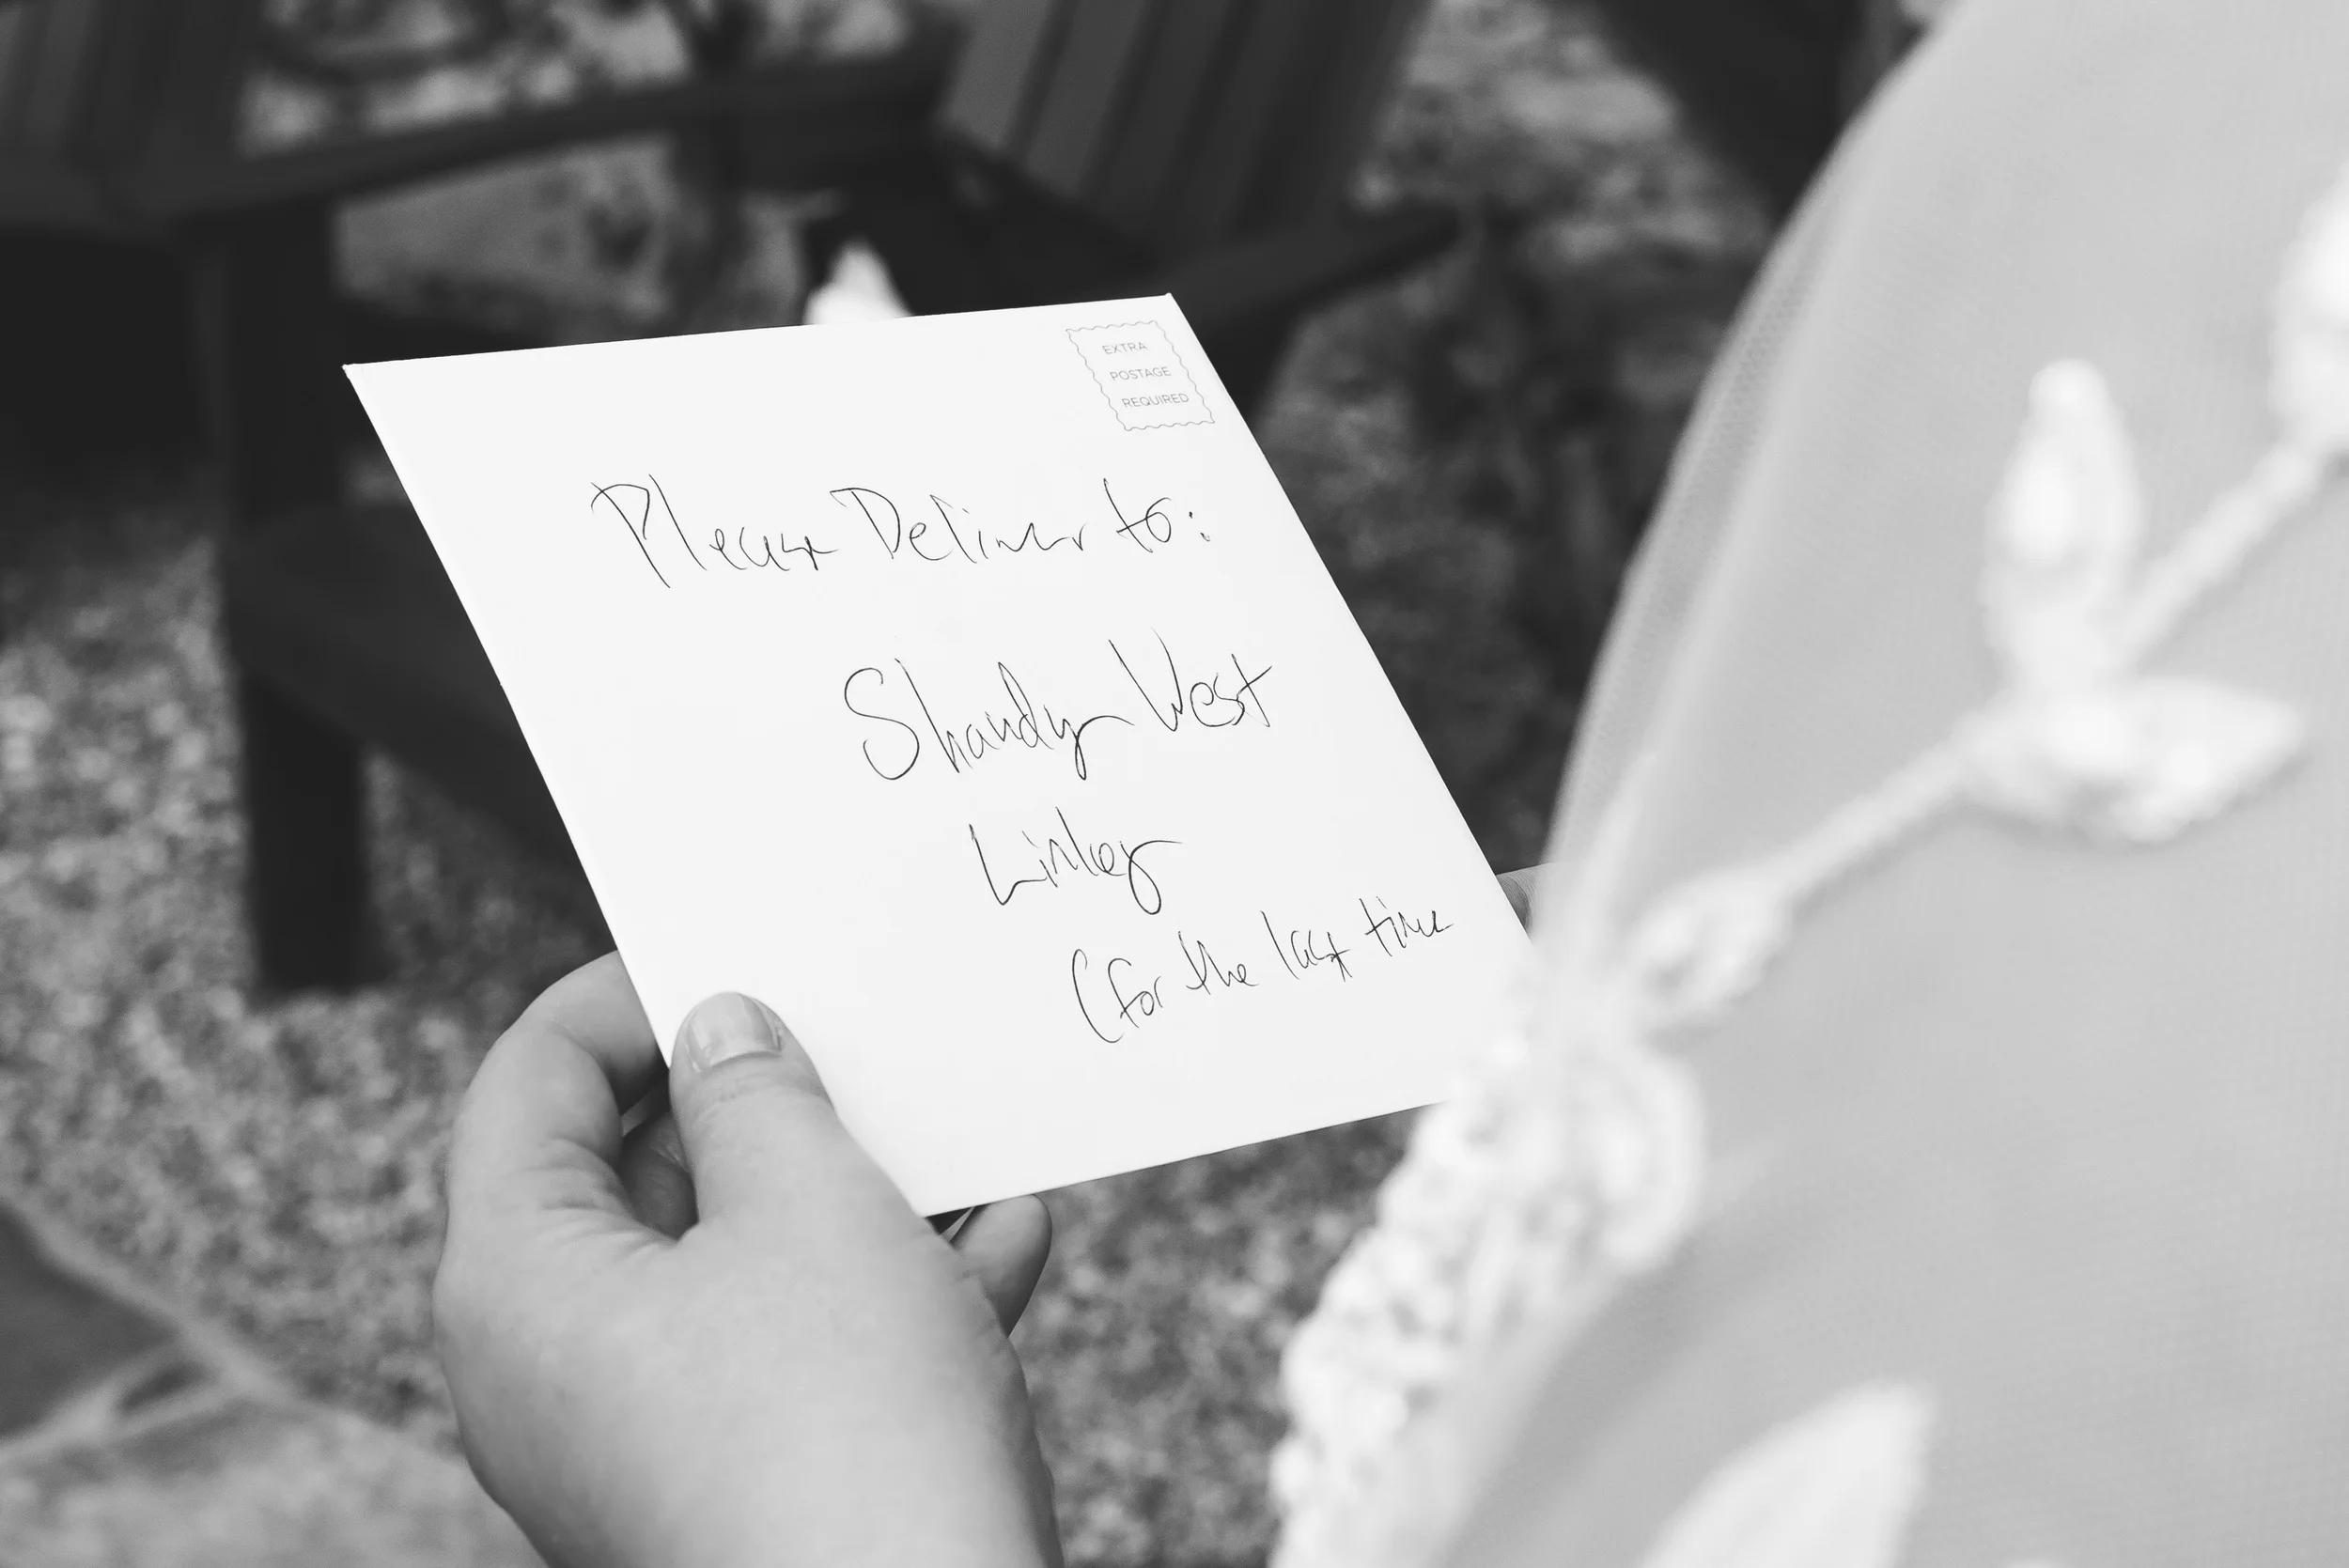 EXTRA
POSTAGE
REQUIRED
Please Deliver to:
Shandy West
Linley
(for the last time